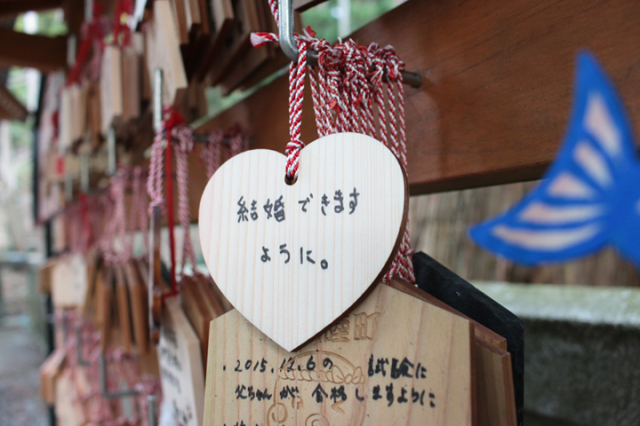 結婚できます
ように。
.2015.12.6の 試験に
父ちゃんが 合格しますように